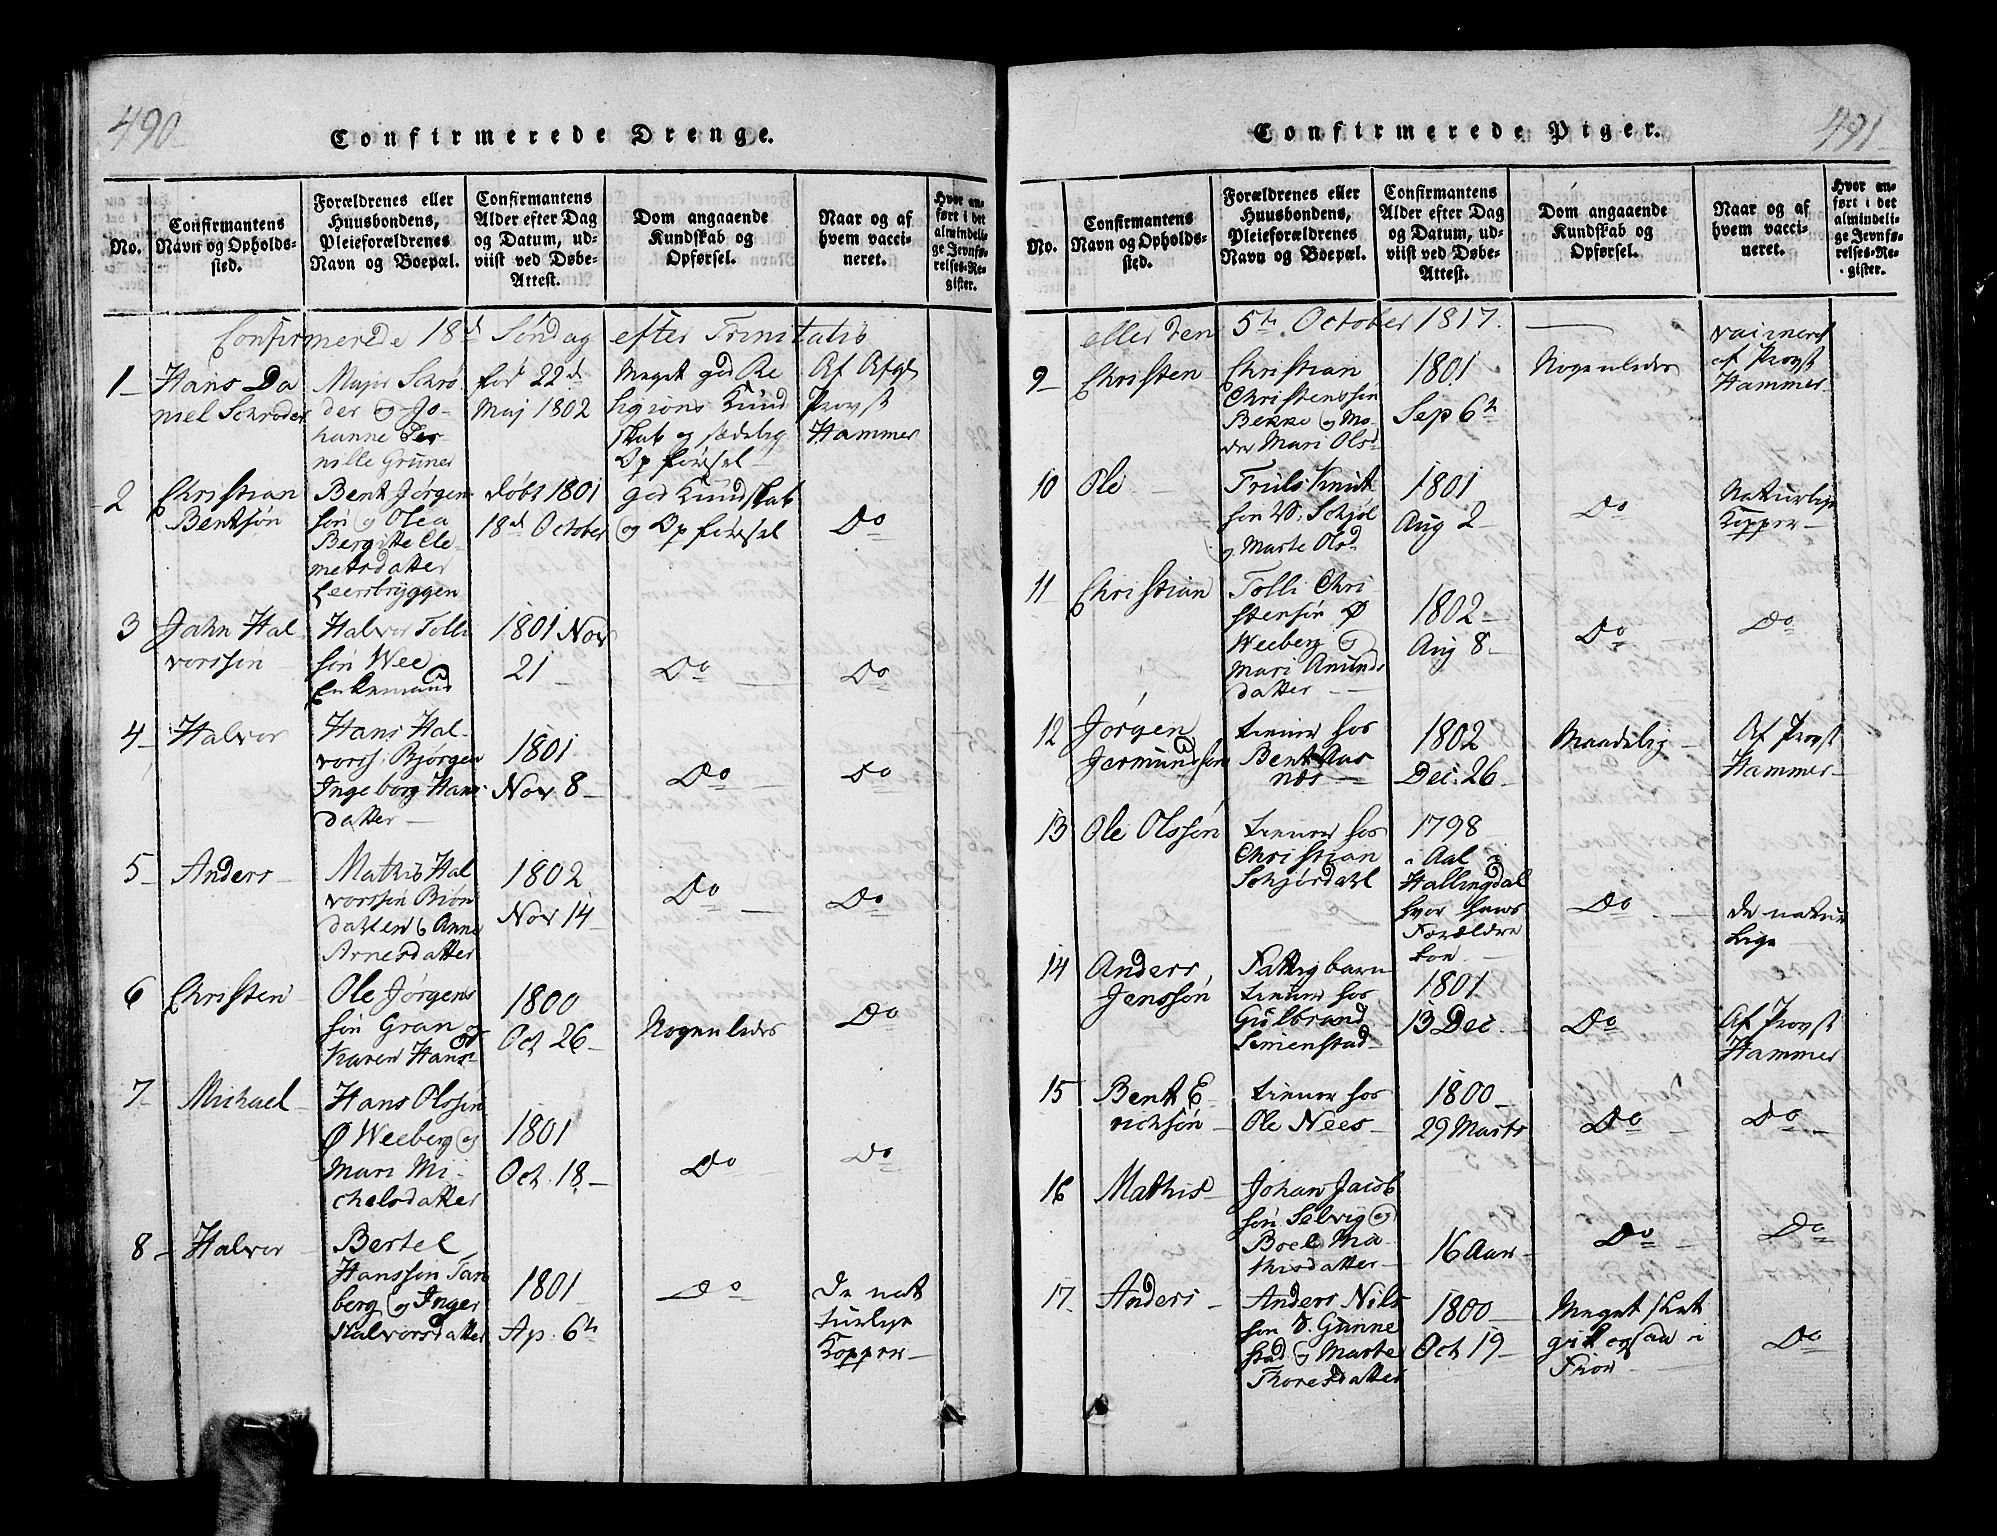 490
Confirmerede Drenge.
No.
Confirmantens
Navn og Opholds-
sted.
Forældrenes eller
Huusbondens,
Pleieforældrenes
Navn og Boepæl.
Confirmantens
Alder efter Dag
og Datum, ud-
viist ved Døbe-
Attest.
Dom angaaende
Kundskab og
Opførsel.
Naar og af
hvem vacci-
neret.
Hvor an-
ført i det
almindeli-
ge Jevnfø-
relses-Re-
gister.
Confirmerede 18d Søndag efter Trinitatis
1
Hans Da
niel Schrøder
Major Schrø
der og Jo-
hanne Per-
nille Gruner
fød 22d
Maj 1802
Meget god Re
ligions Kund
skab og sædelig
Opførsel
Af Afg.
Provst
Hammer
2
Christian
Bentsøn
Bent Jørgen
søn og Olea
Bergitte Cle-
metsdatter
Leersbryggen
døbt 1801
18d October
god Kundskab
og Opførsel
Do
3
Jahn Hal
vorssøn
Halvor Tolli
søn Wee
Enkemand
1801 Nov
21
Do
Do
4
Halvor
Hans Hal-
vorss: Bjørgen
Ingeborg Hans
datter
1801
Nov 8
Do
Do
5
Anders
Mathis Hal
vorssøn Biøn
dalen og Anne
Arnesdatter
1802
Nov 14
Do
Do
6
Christen
Ole Jørgens
søn Gran og
Karen Hans
1800
Oct 26
Nogenledes
Do
7
Michael
Hans Olssøn
Ø Weeberg og
Mari Mi-
chelsdatter
1801
Oct. 18
Do
Do
8
Halvor
Bertel
Hanssøn Tan
berg og Inger
Halvorsdatter
1801
Ap. 6te
Do
De nat
turlige
Kopper
491
Confirmerede Piger.
No.
Confirmantens
Navn og Opholds-
sted.
Forældrenes eller
Huusbondens,
Pleieforældrenes
Navn og Boepæl.
Confirmantens
Alder efter Dag
og Datum, ud-
viist ved Døbe-
Attest.
Dom angaaende
Kundskab og
Opførsel.
Naar og af
hvem vacci-
neret.
Hvor an-
ført i det
almindeli-
ge Jevnfø-
relses-Re-
gister.
eller den 5te October 1817.
9
Christen
Christian
Christenssøn
Bekke og Mo-
der Mari Olsd
1801
Sep 6te
Nogenledes
af Provst
Hammer
10
Ole
Truls Knut
søn V. Schjøl
og Marte Olsd
1801
Aug 2
Do
Naturlige
Kopper
11
Christian
Tolli Chri
stensøn Ø
Weeberg og
Mari Amunds
datter
1802
Aug 8
Do
Do
12
Jørgen
Jermundsen
tiener hos
Bent Aas
næs
1802
Dec. 26
Maadelig
Af Provst
Hammer
13
Ole Olssøn
tiener hos
Christian
Schjørdahl
1798
i Aal i
Hallingdal
hvor hans
Forældre
boe
Do
De natur
lige
14
Anders
Jenssøn
Fattigbarn
tiener hos
Gulbrand
Semenstad
1801
13 Dec
Do
Af Provst
Hammer
15
Bent E-
richsøn
tiener hos
Ole Nees
1800
29 Marts
Do
Do
16
Mathis
Johan Jacob
søn Selvig og
Boel Ma-
thisdatter
16 Aar
Do
Do
17
Anders
Anders Nils
søn V. Gunne
stad og Marte
Thoresdatter
1800
Oct 19
Meget slet
ogsaa i
Do